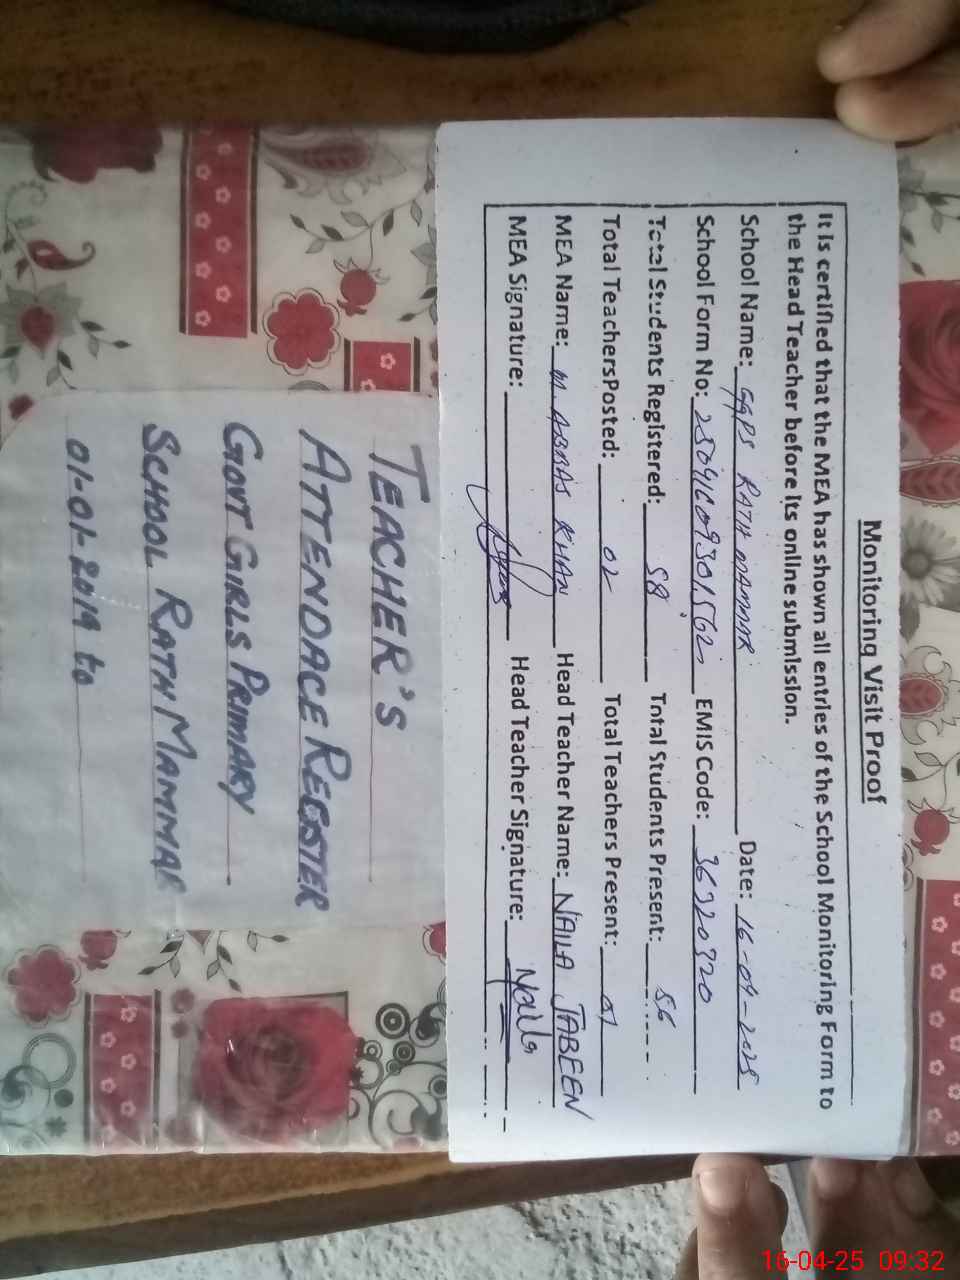 Monitoring Visit Proof
It is certified that the MEA has shown all entries of the School Monitoring Form to
the Head Teacher before its online submission.
School Name: GGPS RATH MAMMAR Date: 16-04-2025
School Form No: 25041609301562 EMIS Code: 36320320
Total Students Registered: 58 Total Students Present: 56
Total TeachersPosted: 02 Total Teachers Present: 01
MEA Name: M. ABBAS KHAN Head Teacher Name: NAILA JABEEN
MEA Signature: Head Teacher Signature: Naila
TEACHER'S
ATTENDACE REGISTER
GOVT GIRLS PRIMARY
SCHOOL RATH MAMMAR
01-01-2019 to
16-04-25 09:32